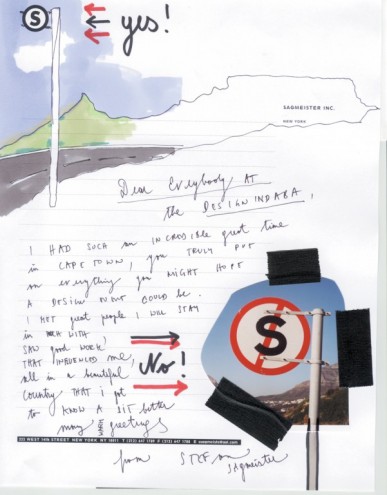 S
yes!
SAGMEISTER INC.
NEW YORK
Dear Everybody AT
the DESIGN INDABA,
I HAD SUCH an INCREDIBLE great time
in CAPE TOWN, you TRULY PUT
on everything you MIGHT HOPE
A DESIGN EVENT COULD be.
I MET great people I WILL STAY
in TOUCH WITH
SAW good WORK
THAT INFLUENCED me,
all in a beautiful
No!
country THAT I got
to KNOW A BIT better
many WARM greetings
S
222 WEST 14TH STREET NEW YORK NY 10011
from STEFAN
Sagmeister